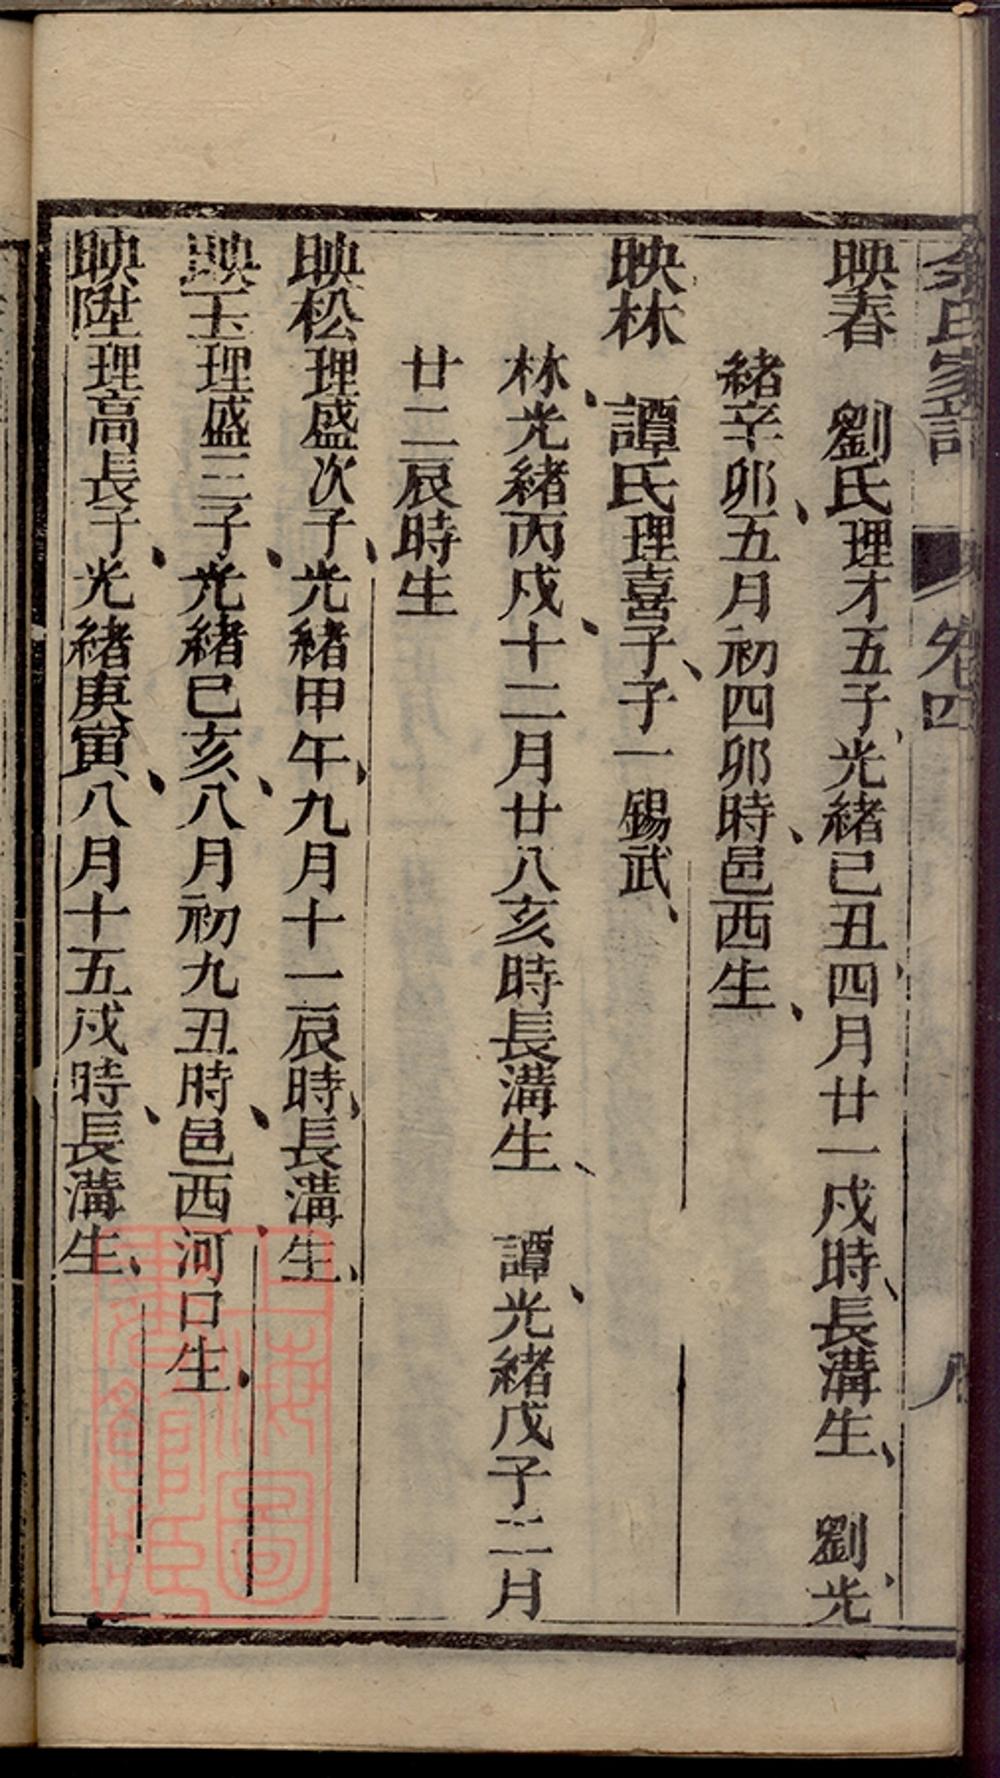 氏家譜 卷四 八
映春 劉氏理才五子光緒己丑四月廿一戌時長溝生 劉光
緒辛卯五月初四卯時邑西生
映林 譚氏理喜子子一錫武
林光緒丙戌十二月廿八亥時長溝生 譚光緒戊子二月
廿二辰時生
映松理盛次子光緒甲午九月十一辰時長溝生
映玉理盛三子光緒己亥八月初九丑時邑西河口生
映陞理高長子光緒庚寅八月十五戌時長溝生
上海圖書館藏